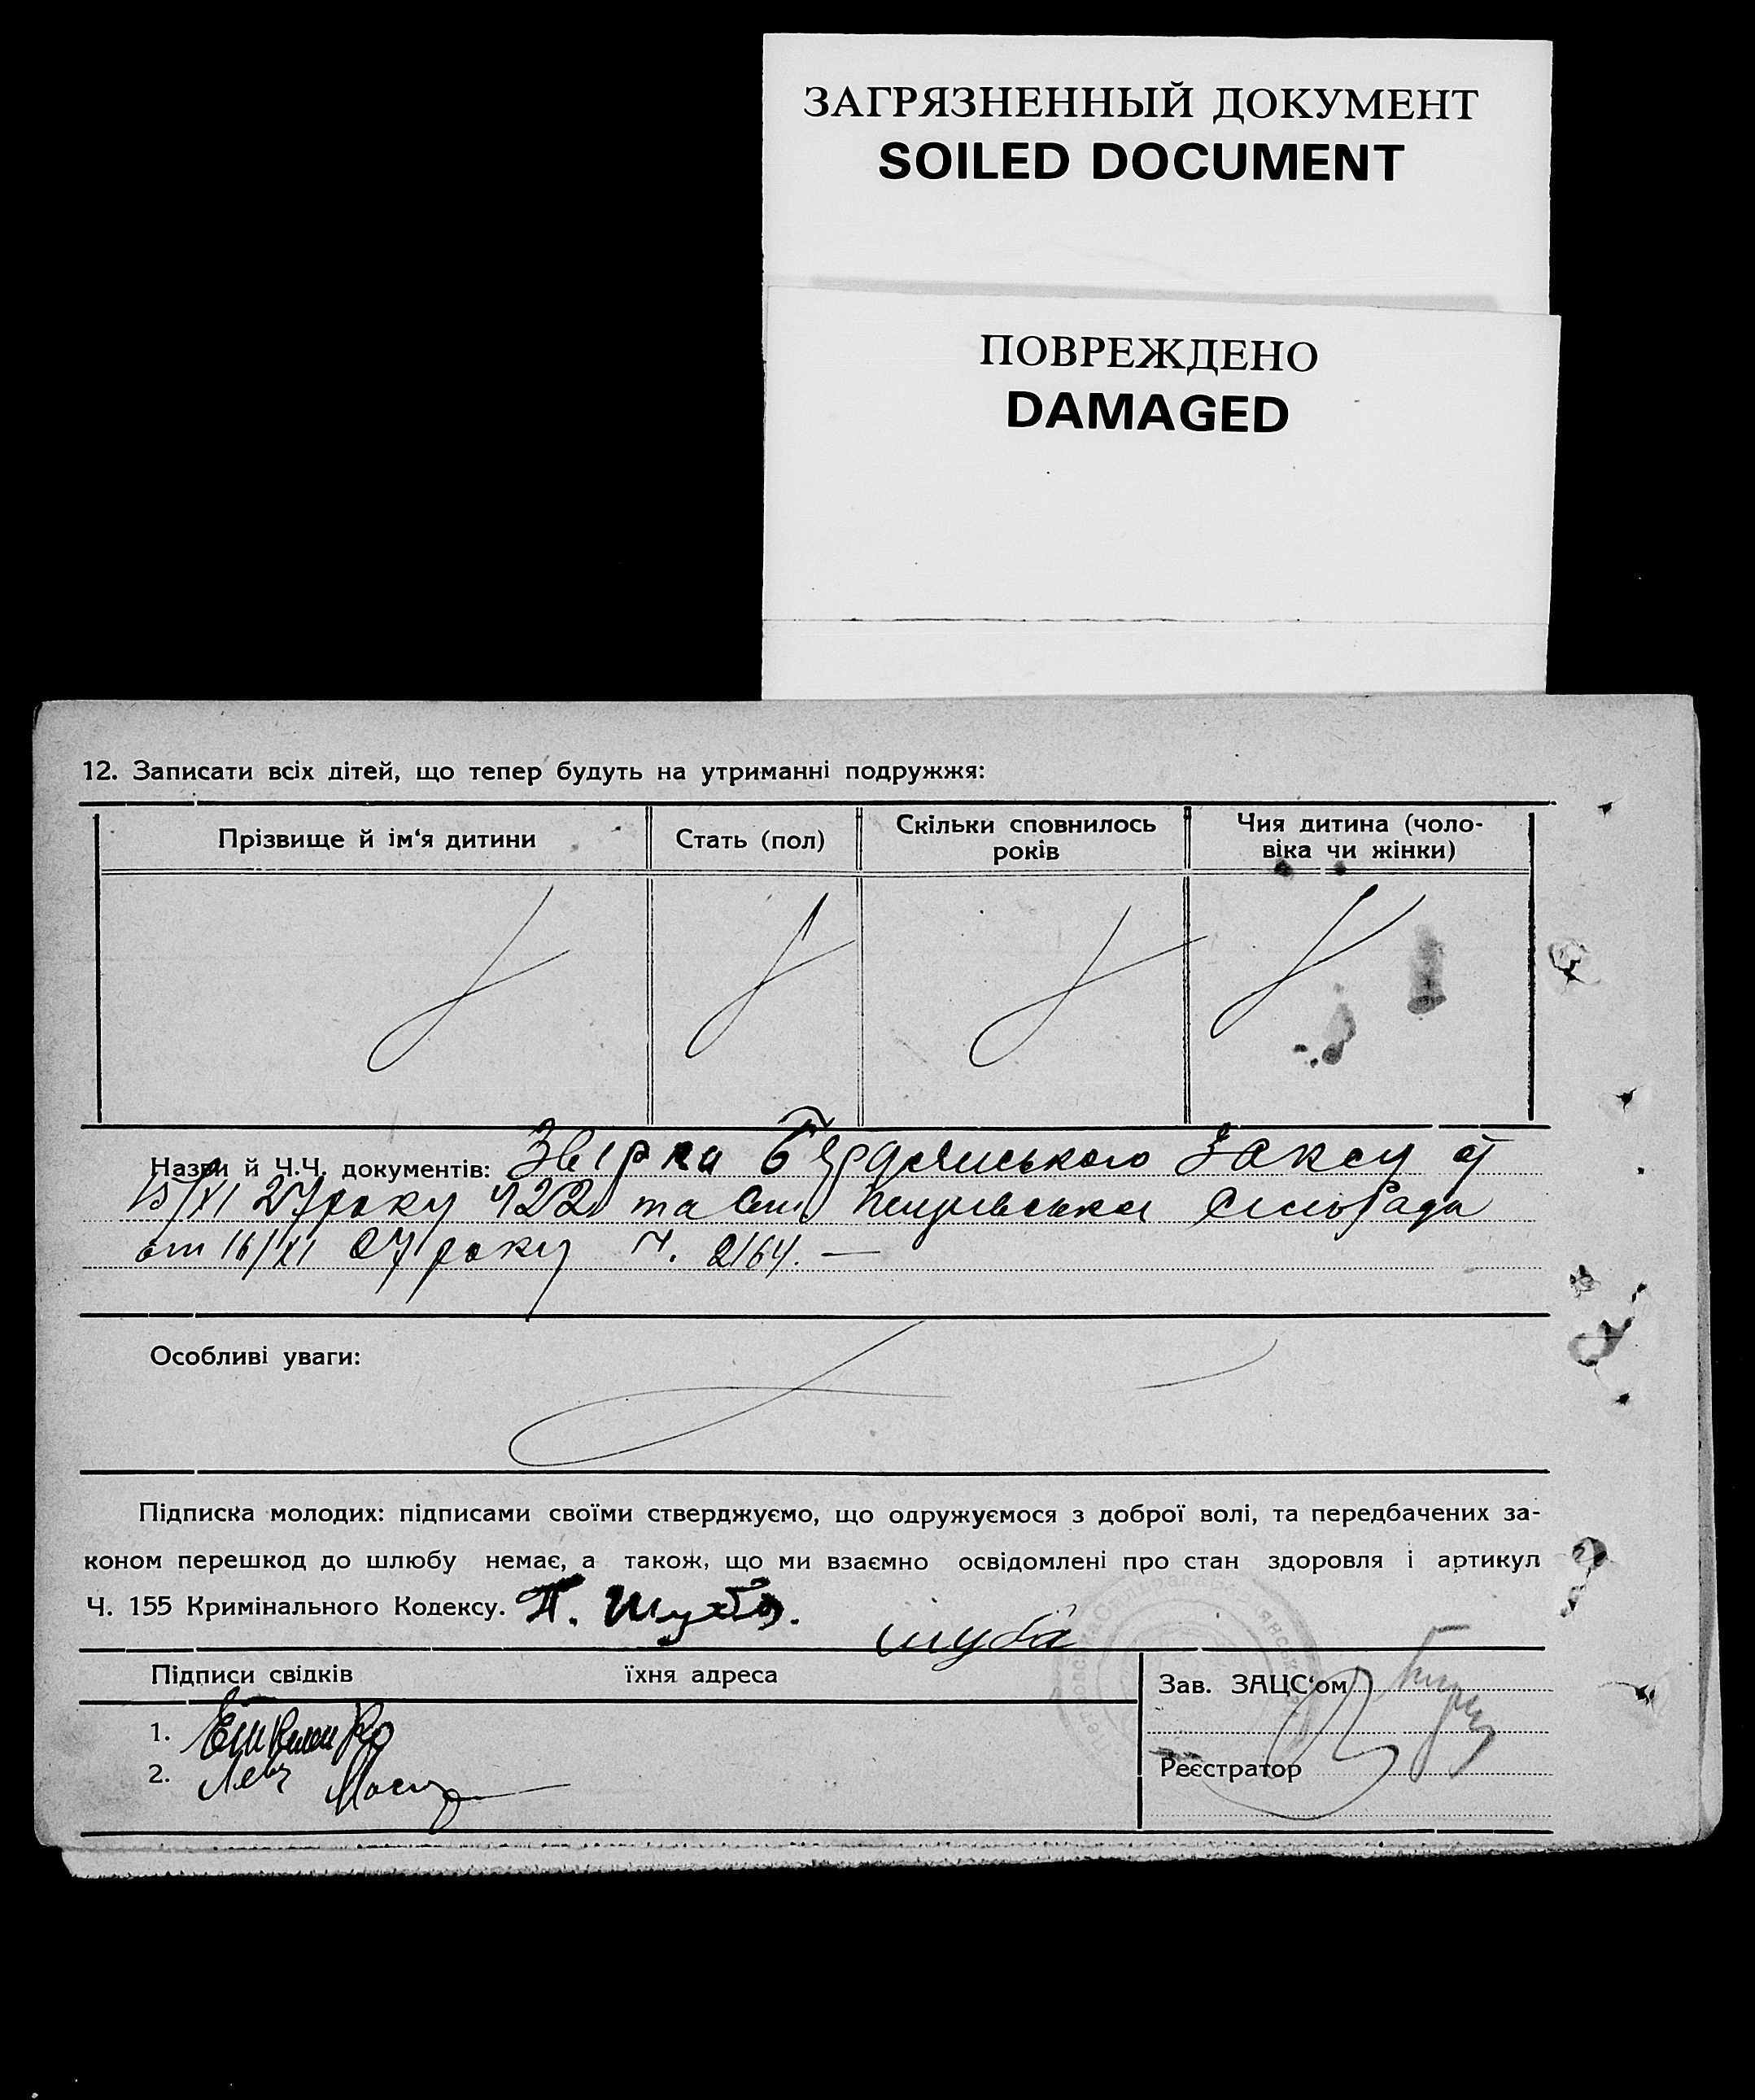 ЗАГРЯЗНЕННЫЙ ДОКУМЕНТ
SOILED DOCUMENT
ПОВРЕЖДЕНО
DAMAGED
12. Записати всіх дітей, що тепер будуть на утриманні подружжя:
Прізвище й ім‘я дитини
Стать (пол)
Скільки сповнилось
років
Чия дитина (чоло-
віка чи жінки)
Назви й Ч.Ч. документів: Звірка Бердянського Заксу
15/XI 27 року Ч 22 та Сільрада
от 16/XI 27 року Ч. 2164. —
Особливі уваги:
Підписка молодих: підписами своїми стверджуємо, що одружуємося з доброї волі, та передбачених за-
коном перешкод до шлюбу немає, а також, що ми взаємно освідомлені про стан здоровля і артикул
Ч. 155 Кримінального Кодексу. П. Шуба.
шуба
Підписи свідків їхня адреса
Зав. ЗАЦС‘ом
1.
2.
Реєстратор